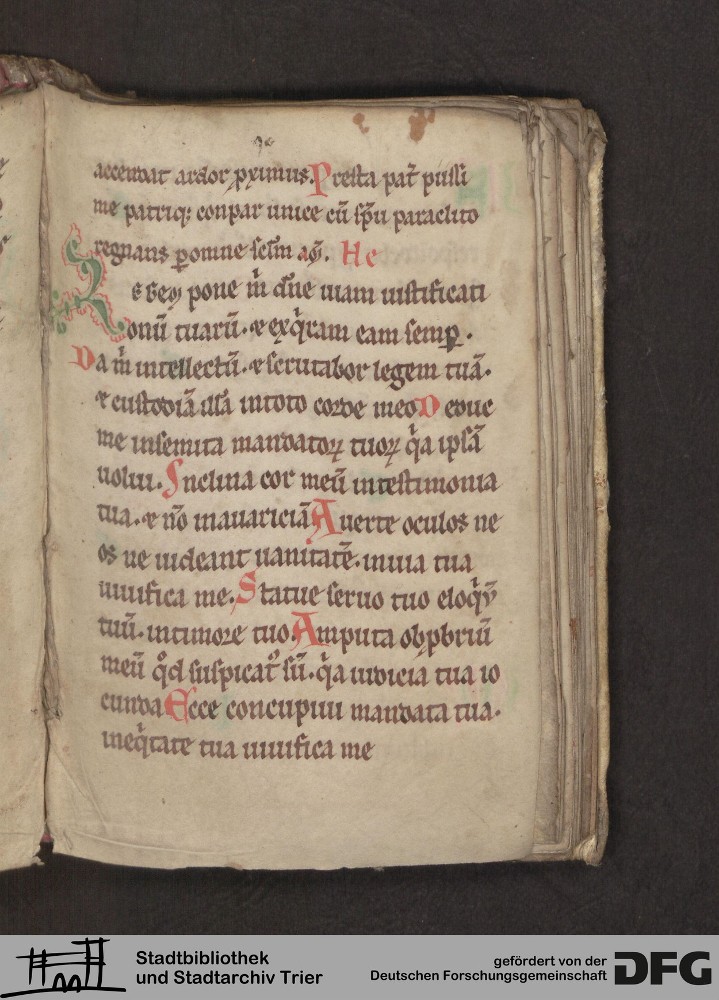 accendat ardor p̱ximus. Presta pat̄ piissi
me patriq; conpar unice cū sp̄u paraclito
regnans ꝑ omne sclm̄ am̄. He
Legem pone m̄ dn̄e uiam iustificati
onū tuarū. ⁊ exq̇ram eam semꝑ.
Da m̄ intellectū. ⁊ scrutabor legem tuā.
⁊ custodiā illā intoto corde meo Deduc
me insemita mandatoꝝ tuoꝝ q̇a ipsā
uolui. Inclina cor meū intestimonia
tua. ⁊ nō inauariciā Auerte oculos me
os ne uideant uanitatē. inuia tua
uiuifica me. Statue seruo tuo eloq̇ū
tuū. intimore tuo. Amputa obp̱briū
meū q̊d suspicat᷒ sū. q̇a iudicia tua io
cunda Ecce concupiui mandata tua.
ineq̇tate tua uiuifica me
Stadtbibliothek
und Stadtarchiv Trier
gefördert von der
Deutschen Forschungsgemeinschaft
DFG